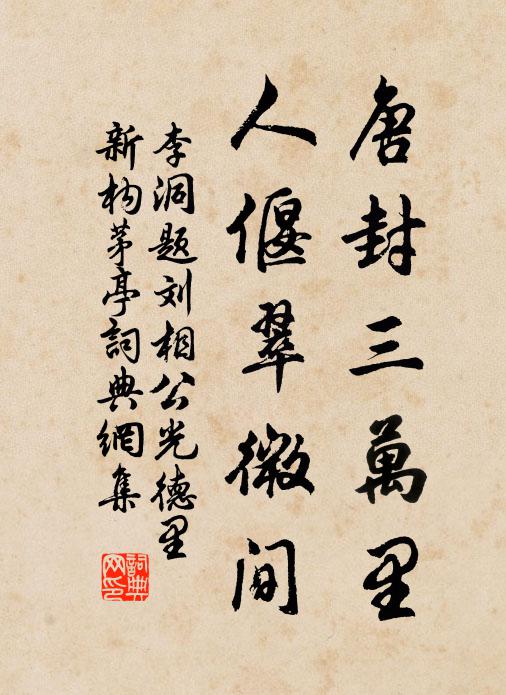 唐封三萬里
人偃翠微间
李洞题刘相公光德里
新构茅亭詞典網集
詞典
网印